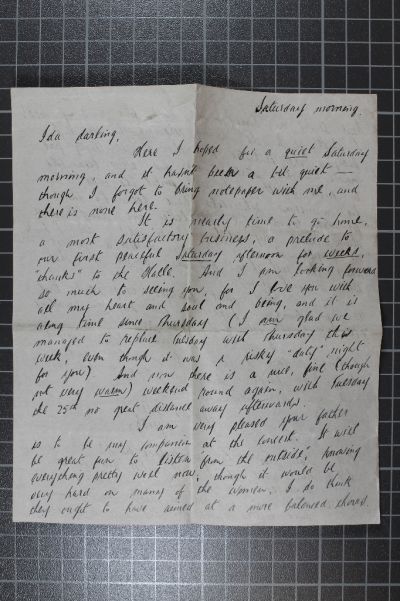 Saturday morning.
Ida darling,
Here I hoped for a quiet Saturday
morning, and it hasn't been a bit quiet —
though I forgot to bring notepaper with me, and
there is none here.
It is nearly time to go home,
a most satisfactory business, a prelude to
our first peaceful Saturday afternoon for weeks,
"thanks" to the Hallé. And I am looking forward
so much to seeing you, for I love you with
all my heart and soul and being, and it is
a long time since Thursday (I am glad we
managed to replace Tuesday with Thursday this
week, even though it was a risky "late" night
for you). And now there is a nice, fine (though
not very warm) weekend round again, with Tuesday
the 25th no great distance away afterwards.
I am very pleased your father
is to be my companion at the concert. It will
be great fun to listen from the outside, knowing
everything pretty well now, though it would be
very hard on many of the women. I do think
they ought to have aimed at a more balanced chorus